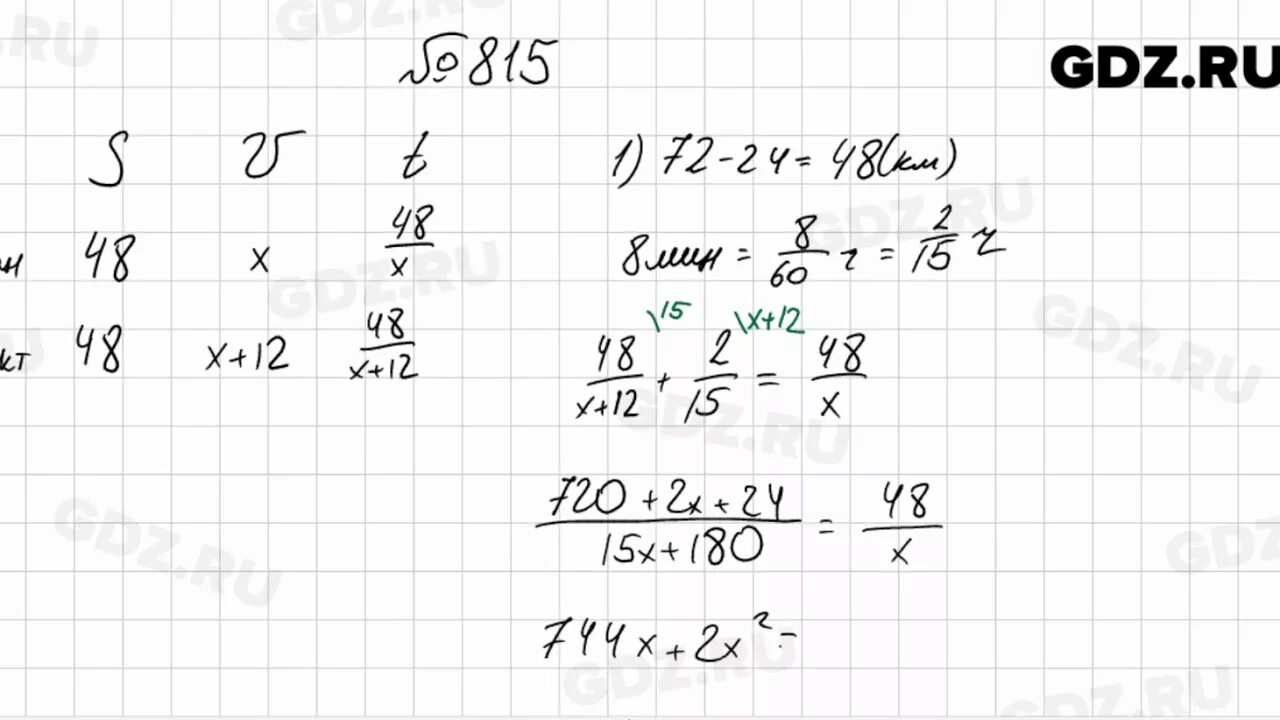 №815
GDZ.RU
S v t
н 48 x 48/x
кт 48 x+12 48/(x+12)
1) 72-24=48(км)
8мин = 8/60 ч = 2/15 ч
\15 \x+12
48/(x+12) + 2/15 = 48/x
(720+2x+24)/(15x+180) = 48/x
744x+2x² =
GDZ.RU
GDZ.RU
GDZ.RU
GDZ.RU
GDZ.RU
GDZ.RU
GDZ.RU
GDZ.RU